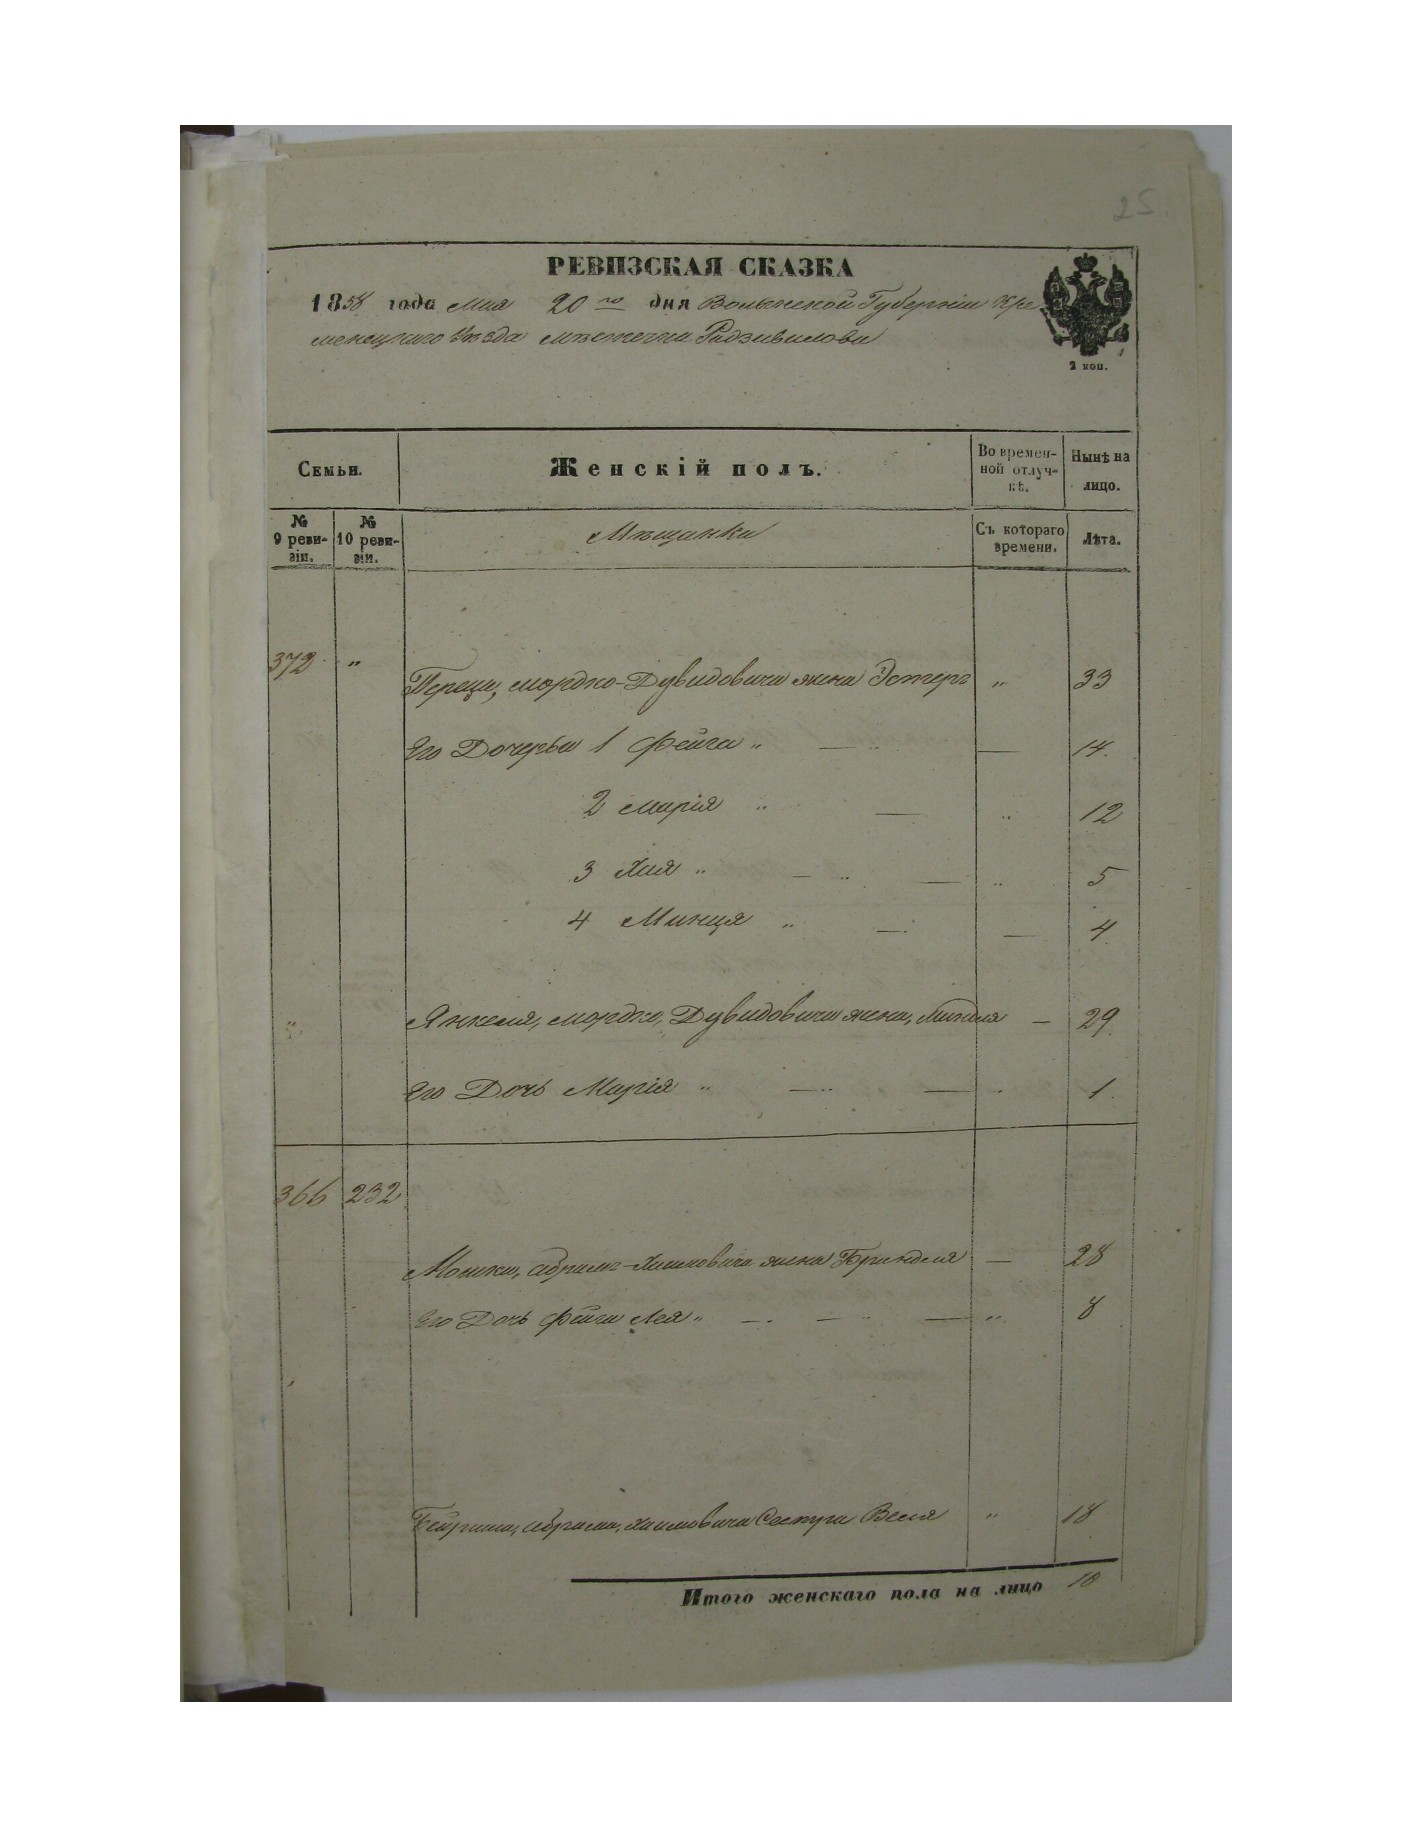 25
РЕВИЗСКАЯ СКАЗКА
1858 года Мая 20го дня Волынской Губерніи Кре
менецкого Уѣзда мѣстечка Радзивилова
2 коп.
Семьи.
Женскій полъ.
Во времен-
ной отлуч-
кѣ.
Нынѣ на
лицо.
№
9 реви-
зіи.
№
10 реви-
зіи.
Мѣщанки
Съ котораго
времени.
Лѣта.
372 " Переца, Мордко-Дувидовича жена Эстеръ " 33
Его Дочерьи 1 Фейга " — " — 14
2 Марія " — " 12
3 Хая " — " — " 5
4 Минця " — — 4
" Янкеля, Мордко, Дувидовича жена, Миндля — 29
Его Дочь Марія " — " — 1
366 232
Мошка, Абрамъ-Хаимовича жена Бриндля — 28
Его Дочь Фейга Лея " — — " — " 8
Абрама, Хаимовича Сестра Веля " 18
Итого женскаго пола на лицо 10